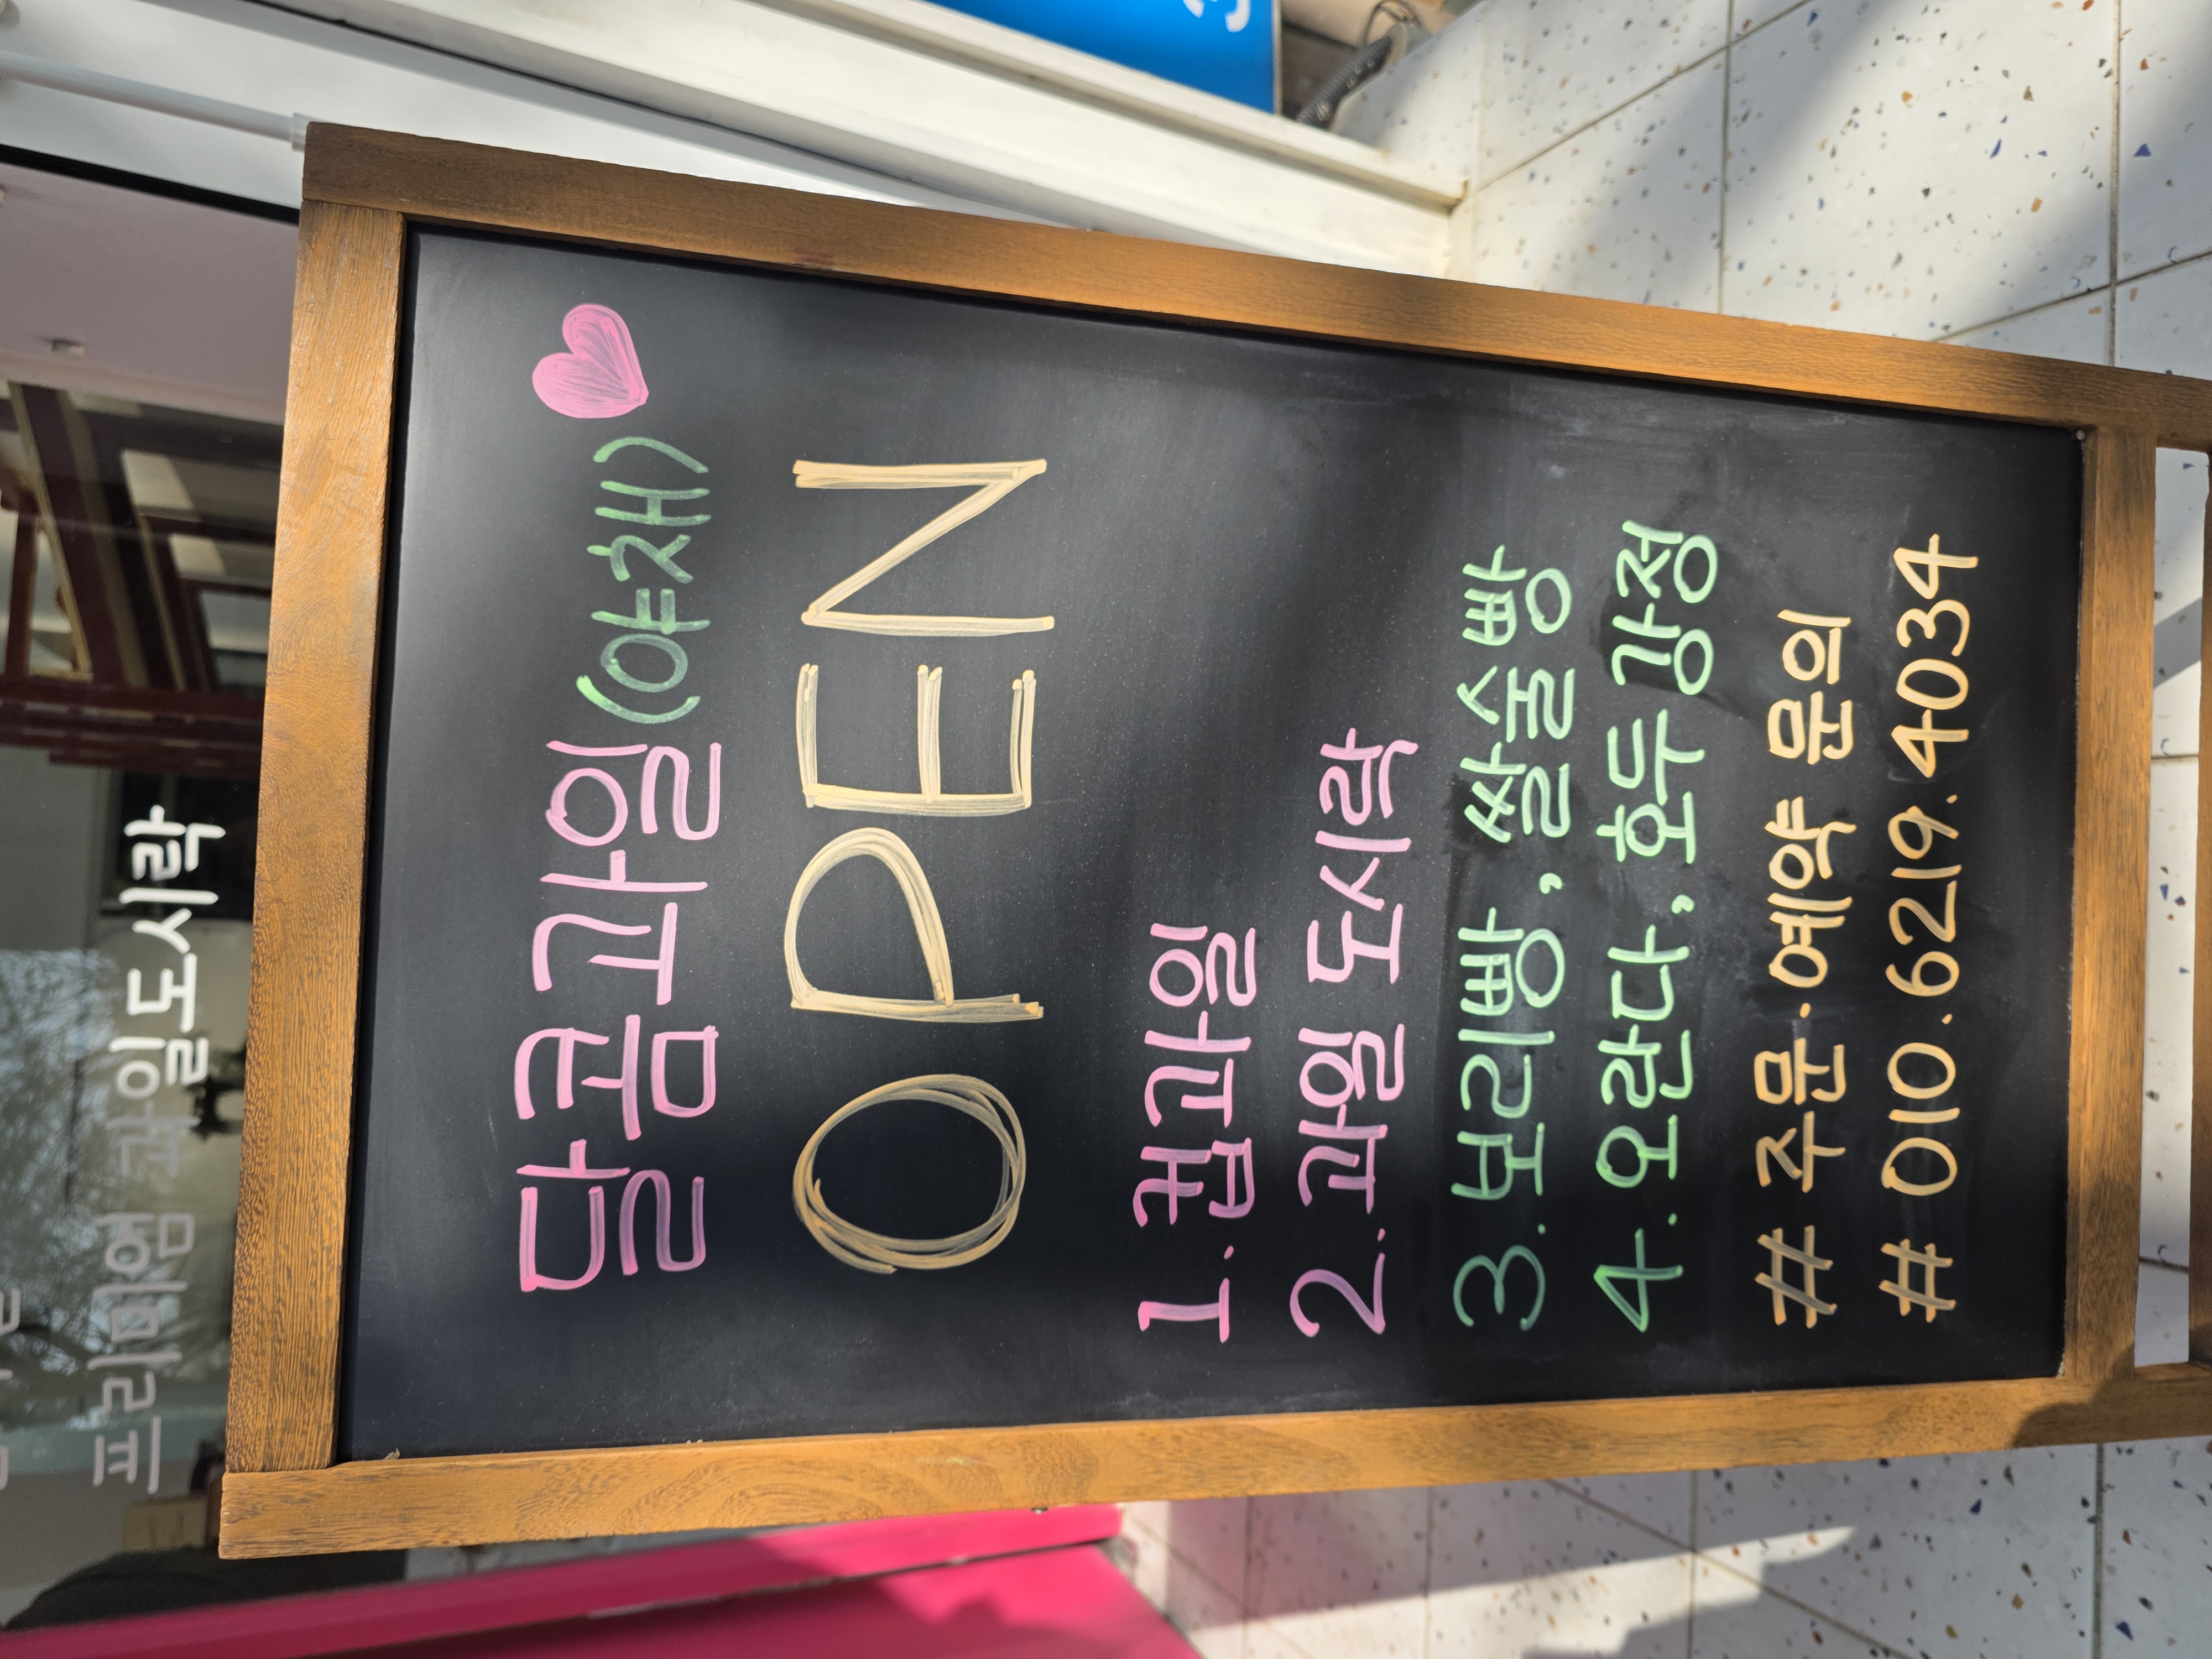 달콤과일(야채)
OPEN
1. 컵과일
2. 과일 도시락
3. 보리빵, 쌀술빵
4. 오란다, 호두강정
# 주문. 예약 문의
# 010.6219.4034
프리미엄 과일도시락